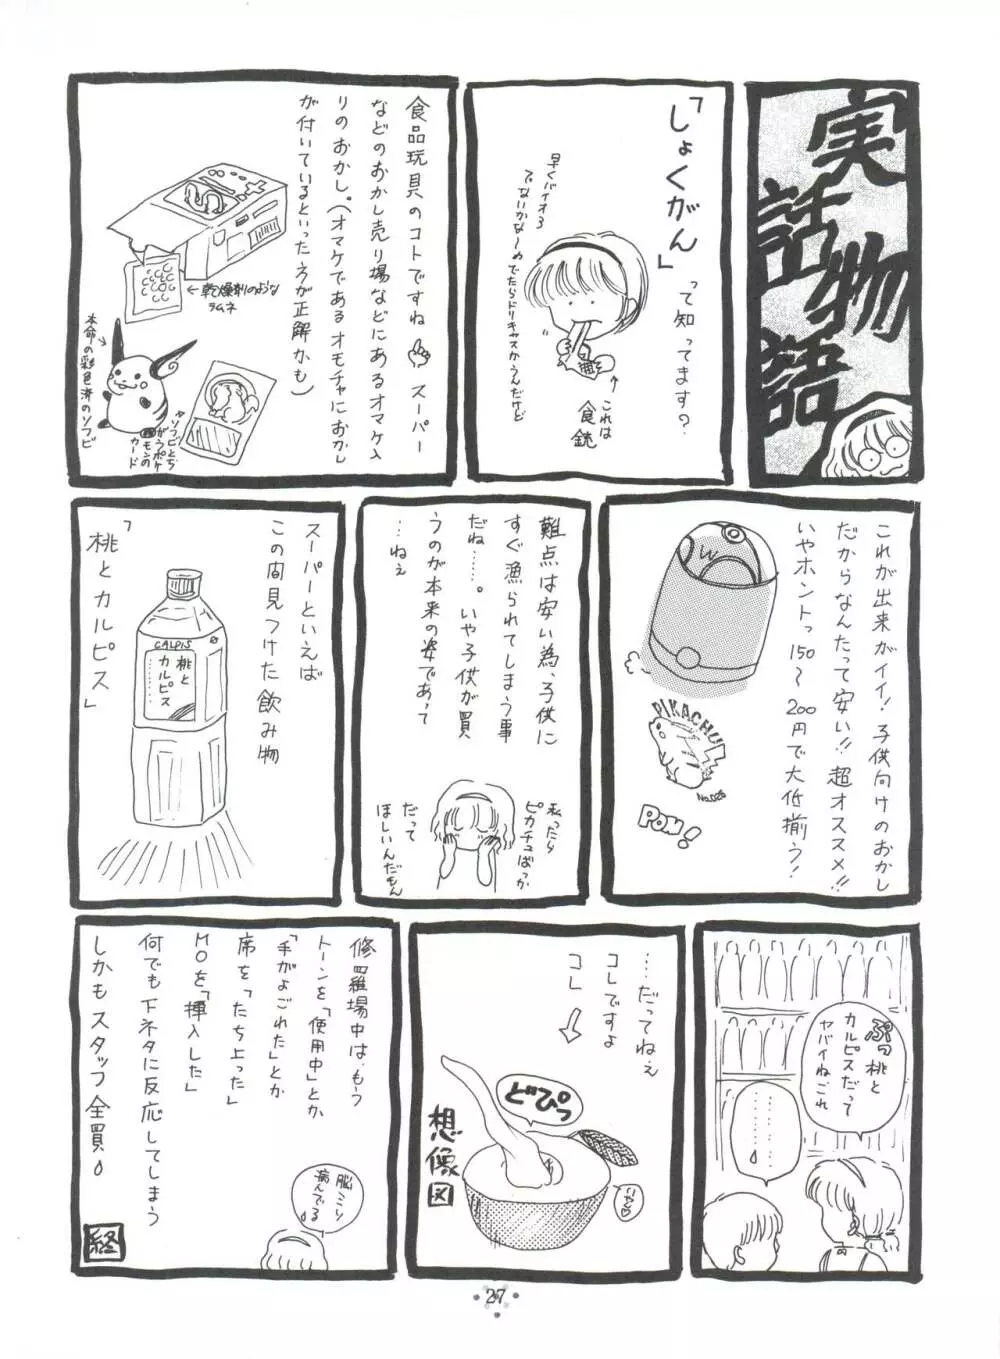 実話
物語
「しょくがん」
って知ってます?
早くバイオ3
でないかなーⓂでたらドリキャスかうんだけど
これは
食銃
食品玩具のコトですね スーパー
などのおかし売り場などにあるオマケ入
りのおかし。(オマケであるオモチャにおかし
が付いているといった方が正解かも)
←乾燥剤のような
ラムネ
本命の彩色済のソフビ
ソフビとち
がうポケ
モンの
カード
これが出来がイイ!子供向けのおかし
だからなんたって安い!!超オススメ!!
いやホントっ150〜200円で大低揃う!
W
PIKACHU
No.025
POW!
難点は安い為、子供に
すぐ漁られてしまう事
だね……。いや子供が買
うのが本来の姿であって
…ねぇ
私ったら
ピカチュばっか
だって
ほしいんだもん
スーパーといえば
この間見つけた飲み物
CALPIS
桃と
カルピス
「桃とカルピス」
ぷっ桃と
カルピスだって
ヤバイねこれ
………
……
……だってねぇ
コレですよ
コレ→
どぴっ
想像図
修羅場中は、もう
トーンを「使用中」とか
「手がよごれた」とか
席を「たち上った」
MOを「挿入した」
何でも下ネタに反応してしまう
しかもスタッフ全員
脳ミソ
病んでる
終
27